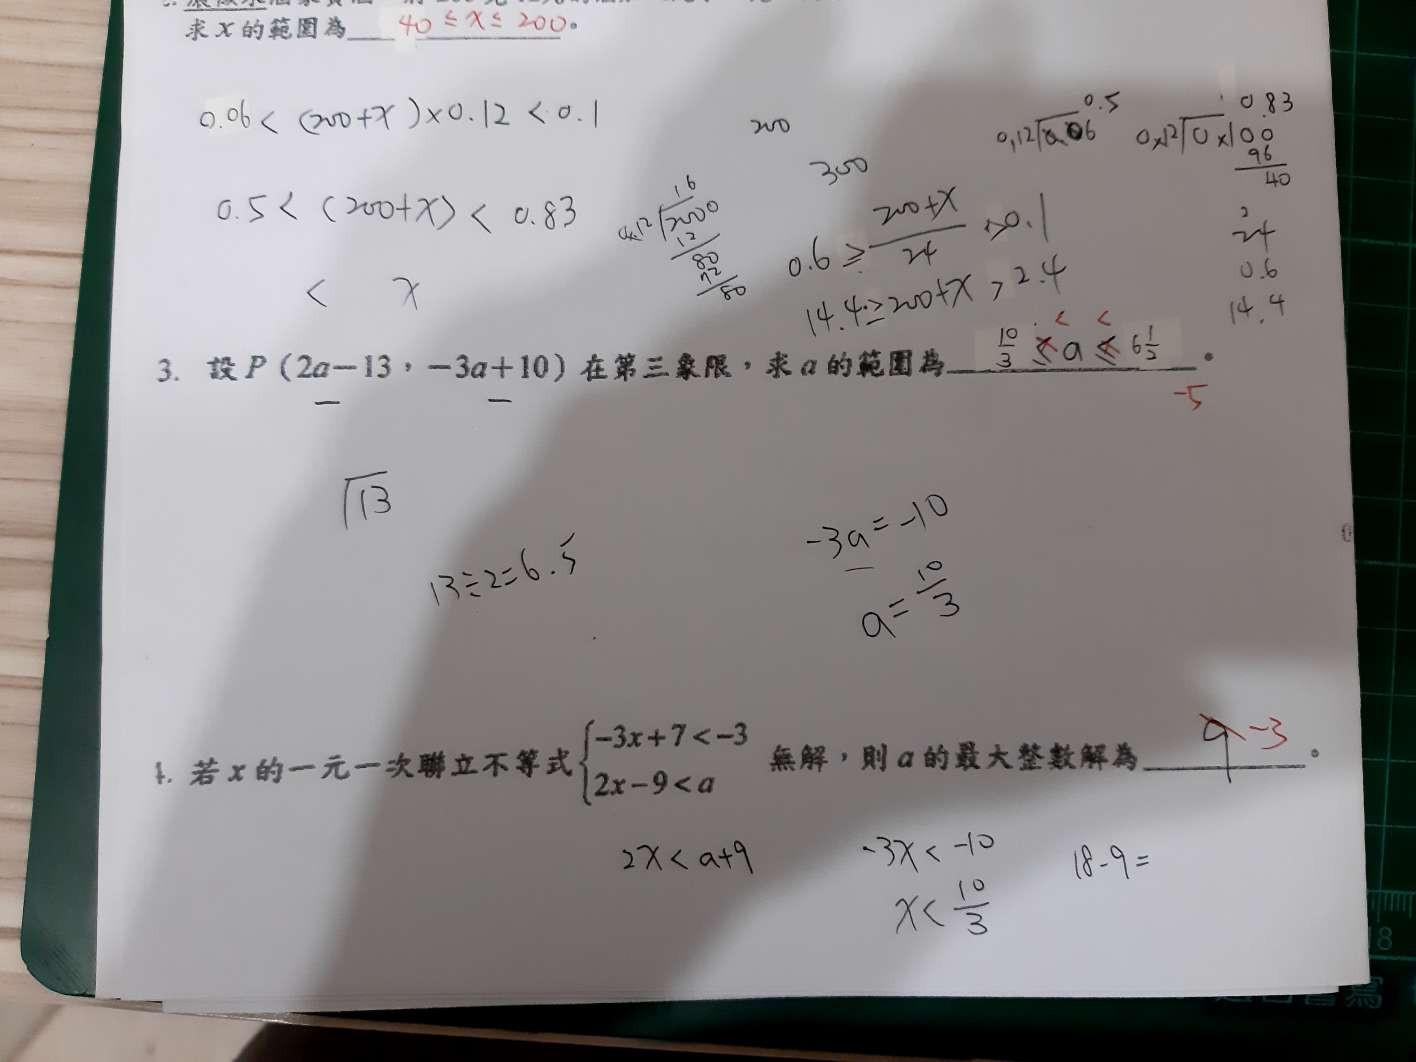 求 x 的範圍為 40 ≤ x ≤ 200。
0.06 < (200+x)×0.12 < 0.1
0.5 < (200+x) < 0.83
< x
200
300
16
0.12 2000
12
80
72
80
0.6 ≥ 200+x / 24 > 0.1
14.4 ≥ 200+x > 2.4
0.5
0.12 0.06
0.83
0.12 0.100
96
40
2
24
0.6
14.4
3. 設 P(2a-13,-3a+10)在第三象限,求 a 的範圍為 10/3 ≤ a ≤ 6 1/2。
< <
-5
13
13÷2=6.5
-3a=-10
a=10/3
4. 若 x 的一元一次聯立不等式 {-3x+7<-3
2x-9<a 無解,則 a 的最大整數解為 9 -3。
2x<a+9
-3x<-10
x<10/3
18-9=
8